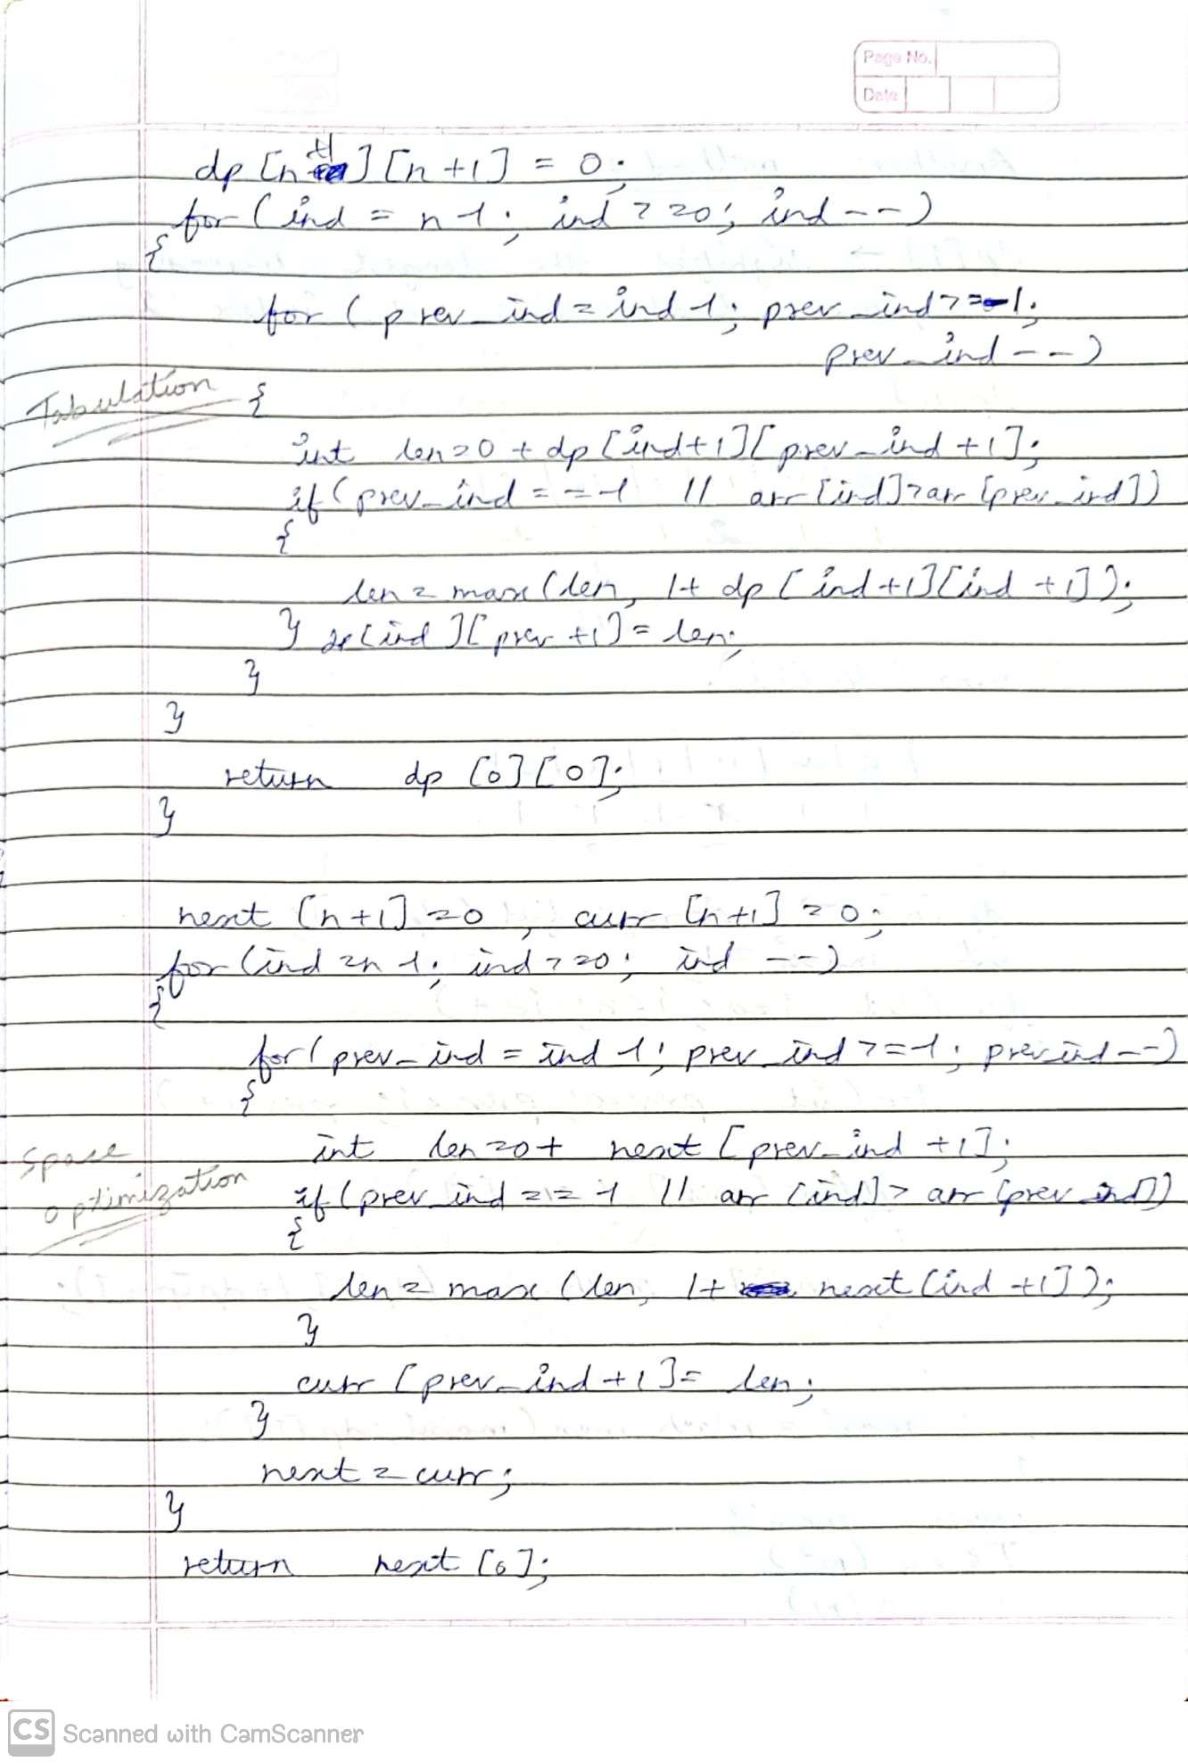 Page No.
Date
dp [n+1] [n+1] = 0;
for (ind = n-1; ind >=0; ind--)
{
for (prev_ind = ind-1; prev_ind >=-1;
prev_ind--)
Tabulation
{
int len=0 + dp[ind+1][prev_ind +1];
if (prev_ind == -1 || arr[ind]>arr[prev_ind])
{
len = max(len, 1+ dp[ind+1][ind +1]);
} dp[ind][prev +1] = len;
}
}
return dp [0][0];
}
next [n+1] =0, curr [n+1] =0;
for (ind =n-1; ind >=0; ind --)
{
for (prev_ind = ind-1; prev_ind >=-1; prev ind--)
{
int len=0+ next [prev_ind +1];
Space
optimization
if (prev_ind == -1 || arr [ind] > arr [prev ind])
{
len = max (len, 1+ next [ind +1]);
}
curr [prev_ind+1]= len;
}
next = curr;
}
return next [0];
CS Scanned with CamScanner